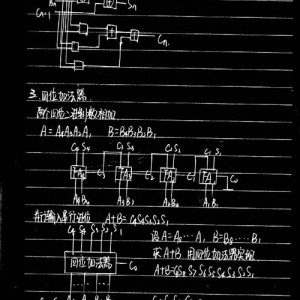 Bn
Sn
Cn-1
Cn
3.四位加法器
两个四位二进制数相加
A=A4A3A2A1 B=B4B3B2B1
C4 S4 C3 S3 C2 S2 C1 S1
FA4 FA3 FA2 FA1 C0
A4B4 A3B3 A2B2 A1B1
并行输入串行进位 A+B=C4S4S3S2S1
C4 S4 S3 S2 S1
四位加法器 C0
设A=A8…A1 B=B8…B1
求A+B 用四位加法器实现
A+B=C8S8S7S6S5S4S3S2S1